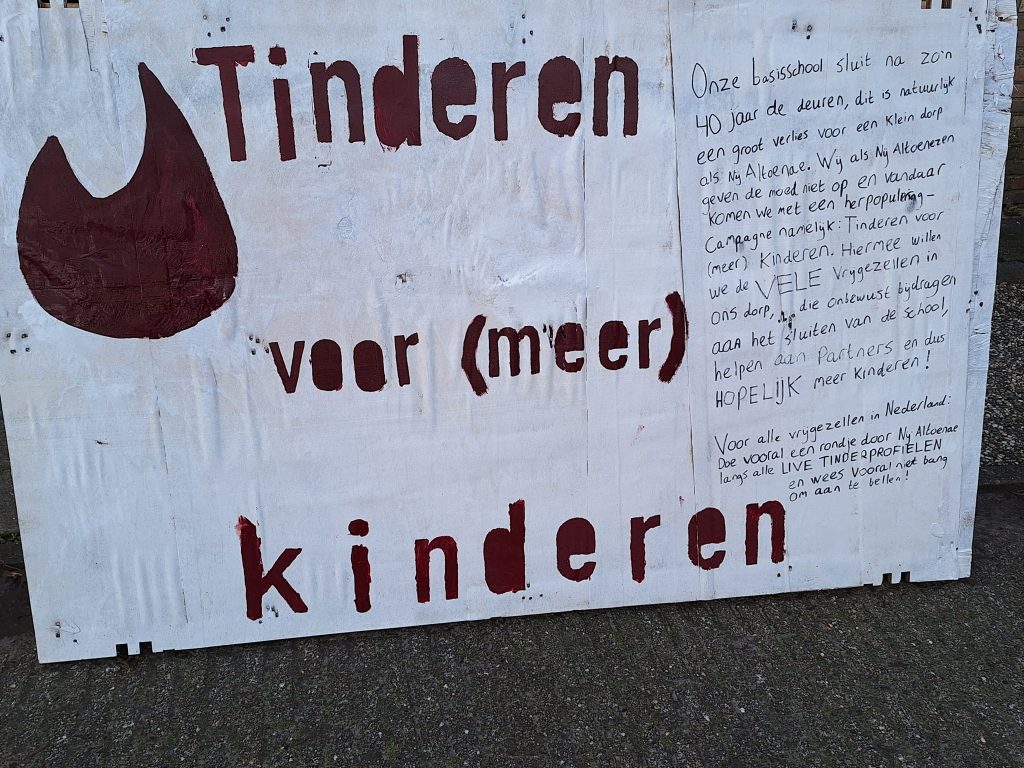 Tinderen
voor (meer)
kinderen
Onze basisschool sluit na zo'n
40 jaar de deuren, dit is natuurlijk
een groot verlies voor een klein dorp
als Nij Altoenae. Wij als Nij Altoenezen
geven de moed niet op en vandaar
komen we met een herpopulering-
Campagne namelijk: Tinderen voor
(meer) Kinderen. Hiermee willen
we de VELE vrijgezellen in
ons dorp, die onbewust bijdragen
aan het sluiten van de school,
helpen aan Partners en dus
HOPELIJK meer Kinderen!
Voor alle vrijgezellen in Nederland:
Doe vooral een rondje door Nij Altoenae
langs alle LIVE TINDERPROFIELEN
en wees vooral niet bang
om aan te bellen!